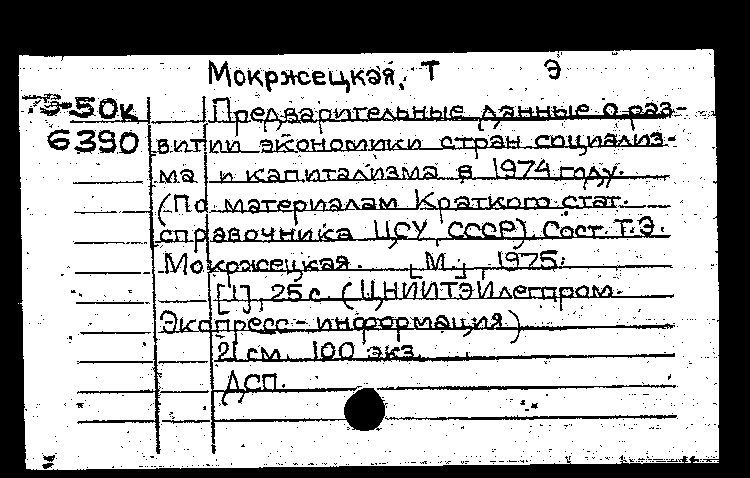 Мокржецкая, Т Э
75-50к Предварительные данные о раз-
6390 витии экономики стран социализ-
ма и капитализма в 1974 году.
(По материалам Краткого стат.
справочника ЦСУ СССР). Сост. Т.Э.
Мокржецкая. [М.], 1975.
[1], 25 с. (ЦНИИТЭИлегпром.
Экспресс-информация)
21 см. 100 экз.
ДСП.